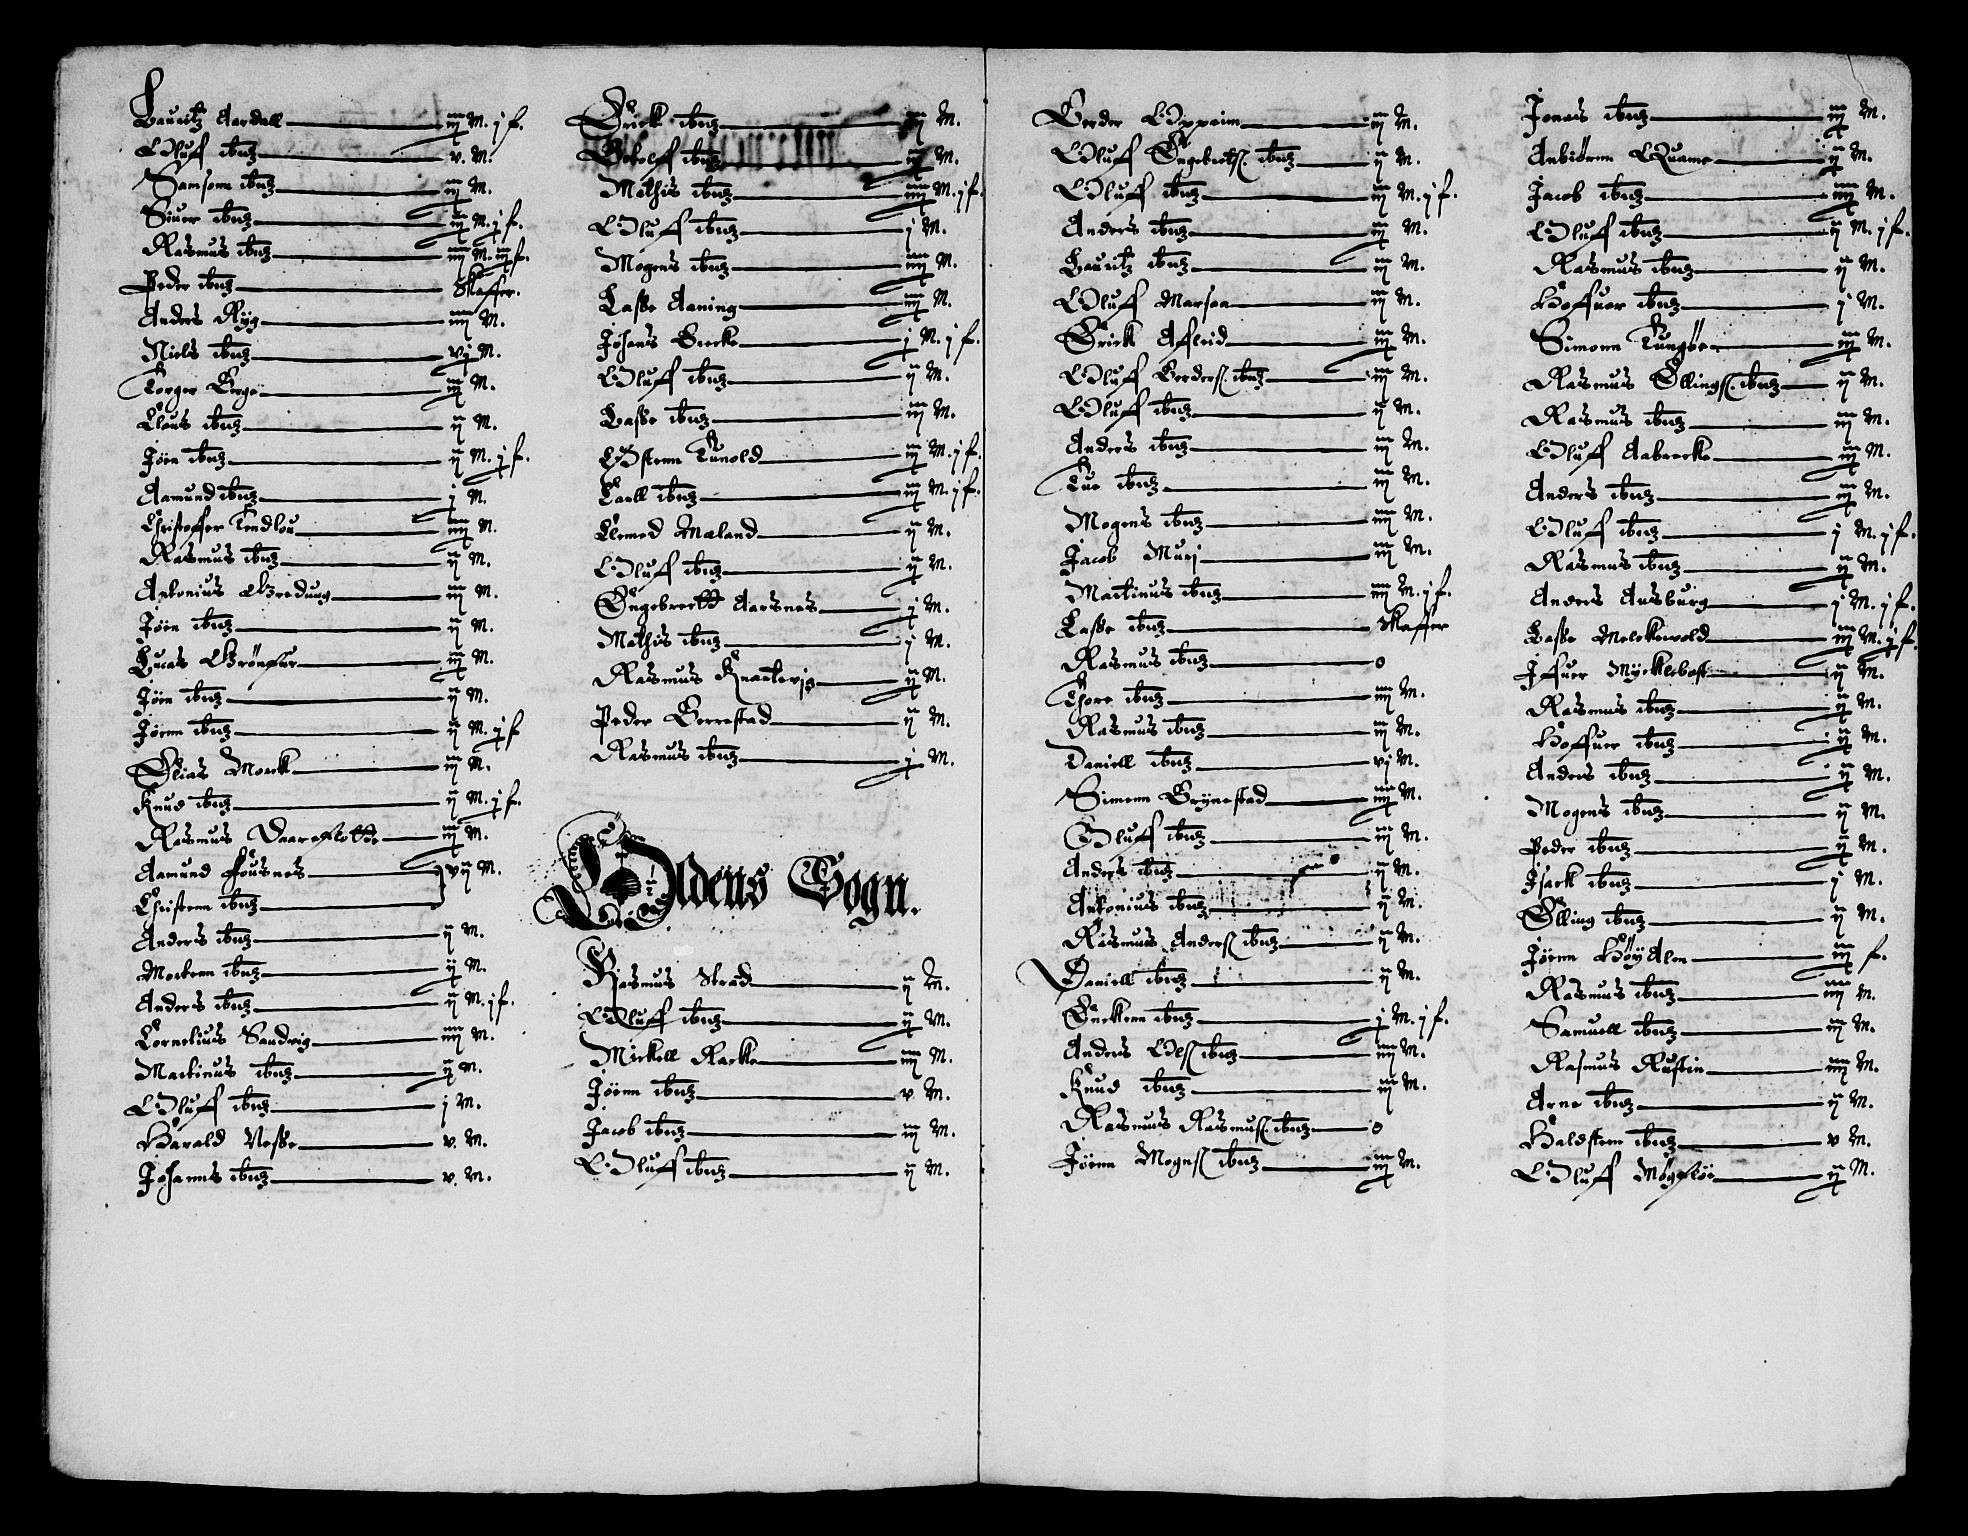 Lauritz Aardall iij M. j f.
Oluff ibid v. M.
Samsonn ibid iij M.
Siuer ibid ij M. j f.
Rasmus ibid iiij M. ij f.
Peder ibid Skaffer.
Anders Ryg iiij M.
Niels ibid vj M.
Torger Erge iij M.
Claus ibid ij M.
Jørn ibid ij M. j f.
Aamund ibid j M.
Christoffer Tendlou iiij M.
Rasmus ibid ij M.
Antonius Bredung iij M.
Jørn ibid ij M.
Lucas Grönfur iij M.
Jörn ibid ij M.
Jörnn ibid ij M. j f
Elias Morck iij M.
Knud ibid ij M. j f.
Rasmus Daareflotte iij M.
Aamund Fousnes vij M.
Christenn ibid
Anders ibid ij M.
Mortenn ibid ij M.
Anders ibid ij M. j f.
Cornelius Sandvig iiij M.
Martinus ibid ij M.
Oluff ibid j M.
Harald Nesse v. M.
Johanns ibid v. M.
Erick ibid iij M.
ibid ij M.
Mathis ibid iiij M. j f.
Oluff ibid j M.
Mogens ibid iiij M.
Lasse Aaning iiij M.
Johans Berke j M. j f.
Oluff ibid ij M.
Lasse ibid iij M.
Østenn Tunold iij M. j f.
Carll ibid iij M. j f.
Clemed Maland ij M.
Oluff ibid ij M.
Engebrectt Aarsnes j M.
Mathis ibid j M.
Rasmus Knarterig ij M.
Peder Gerrestad ij M.
Rasmus ibid j M.
Oldens Sogn.
Rasmus Strad ij M.
Oluff ibid ij M.
Mickell Racke iiij M.
Jörnn ibid v. M.
Jacob ibid iij M.
Oluff ibid ij M.
Peder Oppeim iij M.
Oluff Engebretß. ibid ij M.
Oluff ibid iij M. j f.
Anders ibid iij M.
Lauritz ibid iij M.
Oluff Marsaa iij M.
Erick Afleid iij M.
Oluff Pedersß. ibid iij M.
Oluff ibid ij M.
Anders ibid iij M.
Tue ibid iij M.
Mogens ibid iiij M.
Jacob Muri iij M.
Martinus ibid iiij M. j f.
Lasse ibid Skaffer
Rasmus ibid 0
Thore ibid iiij M.
Rasmus ibid iij M.
Daniell ibid vj M.
Simonn Brynestad iiij M.
Oluff ibid iij M.
Anders ibid ij M.
Antonius ibid ij M.
Rasmus Andersß ibid ij M.
Daniell ibid ij M.
Enckenn ibid j M. j f.
Anders Olsß ibid iiij M.
Knud ibid iij M.
Rasmus Rasmusß. ibid 0
Jörnn Mognsß ibid iij M.
Jonas ibid iij M.
Anbiörnn Quame ij M.
Jacob ibid iiij M.
Oluff ibid ij M. j f.
Rasmus ibid ij M.
Hoffuer ibid j M.
Simonn Tungöe iij M.
Rasmus Ellingsß. ibid ij M.
Rasmus ibid iij M.
Oluff Aabrecke iij M.
Anders ibid iij M.
Oluff ibid j M. j f.
Rasmus ibid ij M.
Anders Ausburg j M. j f.
Lasse Melckevold iij M. j f.
Iffuer Mycklebost ij M.
Rasmus ibid ij M.
Hoffuer ibid ij M.
Anders ibid ij M.
Mogens ibid ij M.
Peder ibid ij M.
Isack ibid j M.
Elling ibid ij M.
Jörnn Höyalm iij f.
Rasmus ibid iiij M.
Samuell ibid iij M.
Rasmus Rustin iiij M.
Arne ibid ij M.
Haldstenn ibid v M.
Oluff Mögeløi ij M.